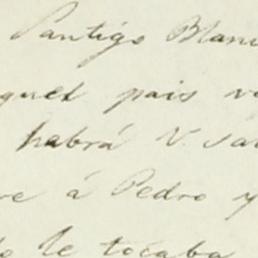 Pantigo Blan
quel pais v
habrá V. sa
re á Pedro y
le tocaba